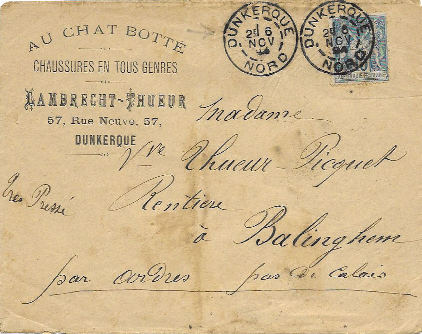 AU CHAT BOTTÉ
CHAUSSURES EN TOUS GENRES
LAMBRECHT-THUEUR
57, Rue Neuve, 57,
DUNKERQUE
DUNKERQUE
6
NOV
NORD
DUNKERQUE
6
NOV
NORD
Madame
Vve Thueur Picquet
Très Pressé
Rentière
à Balinghem
par Ardres pas de Calais